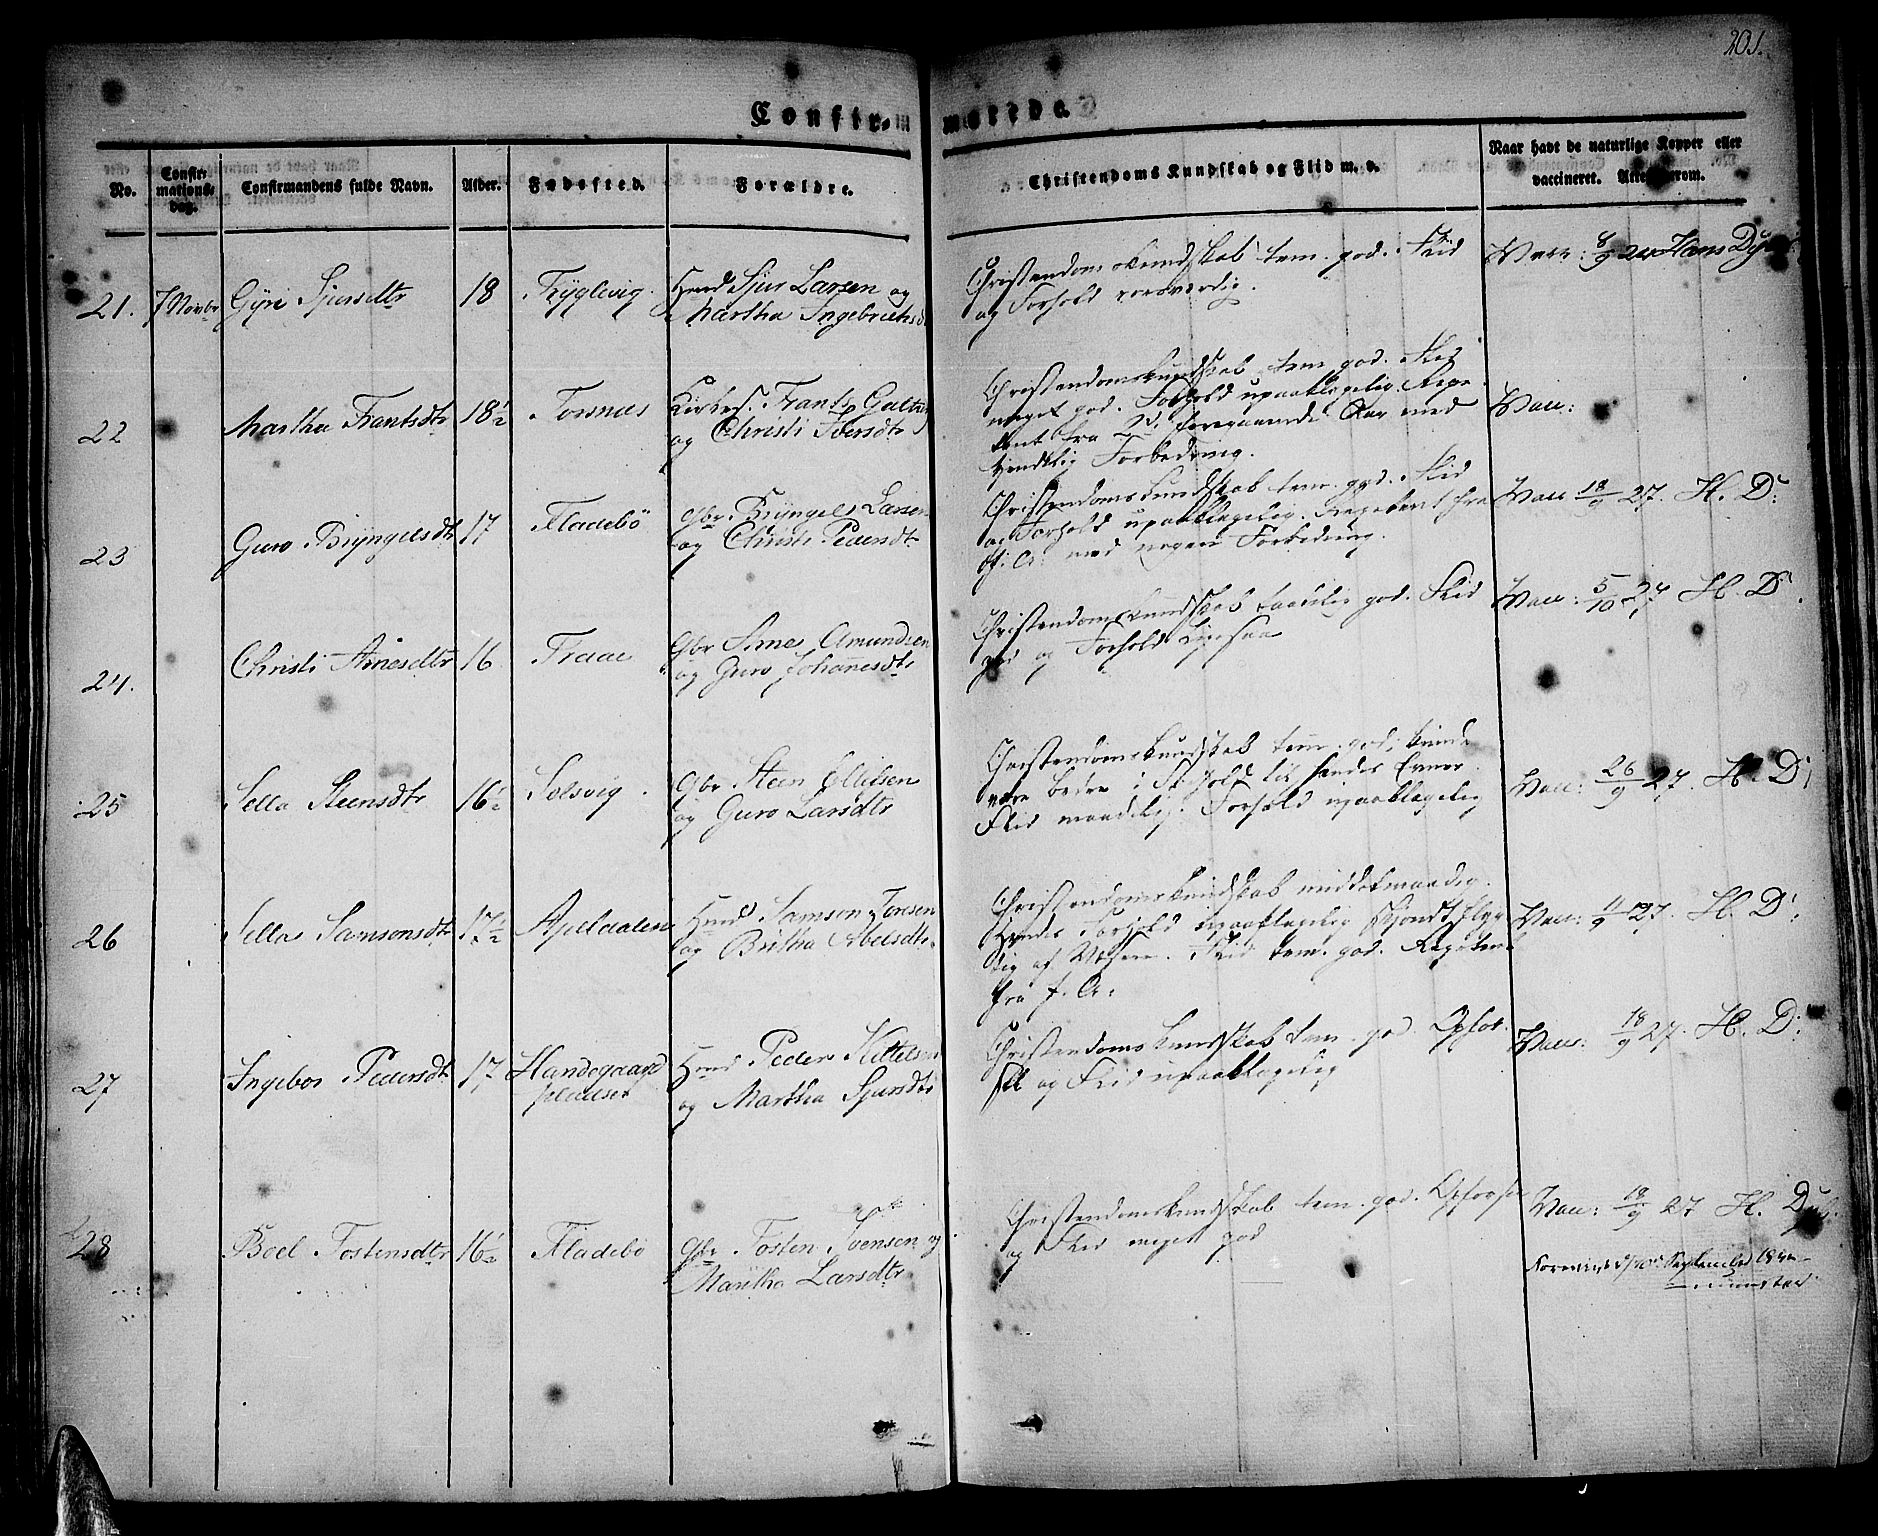 201.
Confir-
merede.
No.
Confir-
mations-
dag.
Confirmandens fulde Navn.
Alder.
Fødested.
Forældre.
Christendoms Kundskab og Flid m. v.
Naar havt de naturlige Kopper eller
vaccineret. Attest herom.
21. 7 Novbr Gyri Sjursdtr 18 Tryglevig. Hmd Sjur Larsen og
Martha Ingebricths
Christendomskundskab tem. god. Flid
og Forhold roesværdig.
Vacc: 8/9 Hans
22 Martha Frantsdtr 18½ Torsnus Kirkes. Frants
og Christi Iversdtr
Christendomskundskab tem god. Flid
meget god. Forhold upaaklagelig. Repe
tent fra foregaaende Aar med
kjendelig Forbedring.
Vacc:
23 Guro Bryngelsdtr 17 Fladebö Gbr. Bryngel Larsen
og Christi Pedersdtr
Christendomskundskab tem. god. Flid
og Forhold upaaklagelig. Repetent fra
f. A. med nogen Forbedring.
Vacc 18/9 27. H. D:
24. Christi Arnesdtr 16 Traae Gbr Arne Amundsen
og Guro Johanesdtr
Christendomskundskab god. Flid
god og Forhold ligesaa
Vacc: 5/10 27 H. D.
25 Sella Steensdtr 16½ Solsvig. Gbr Steen Ellilsen
og Guro Larsdtr
Christendomskundskab tem. god; kunde
være bedre i Forhold til hendes Evner.
Flid maadelig. Forhold upaaklagelig
Vacc: 26/9 27. H. D;
26 Sella Samsonsdtr 17½ Apeldalen Hmd Samson Toresen
og Britha Abelsdtr.
Christendomskundskab middelmaadig.
Hendes Forhold upaaklagelig skjøndt
af Væsen. Flid tem. god. Repetent
fra f. A:
Vacc: 11/9 27. H. D;
27 Ingebor Pedersdtr 17 Handegaard
Hmd Peder Kittelsen
og Martha Sjursdtr
Christendomskundskab tem. god. Opfør-
sel og Flid upaaklagelig
Vacc. 18/9 27. H. D:
28 Boel Tostensdtr 16½ Fladebö Gbr. Tosten Ivensen og
Martha Larsdtr
Christendomskundskab tem. god. Opførsel
og Flid meget god
Vacc: 18/9 27 H.
September